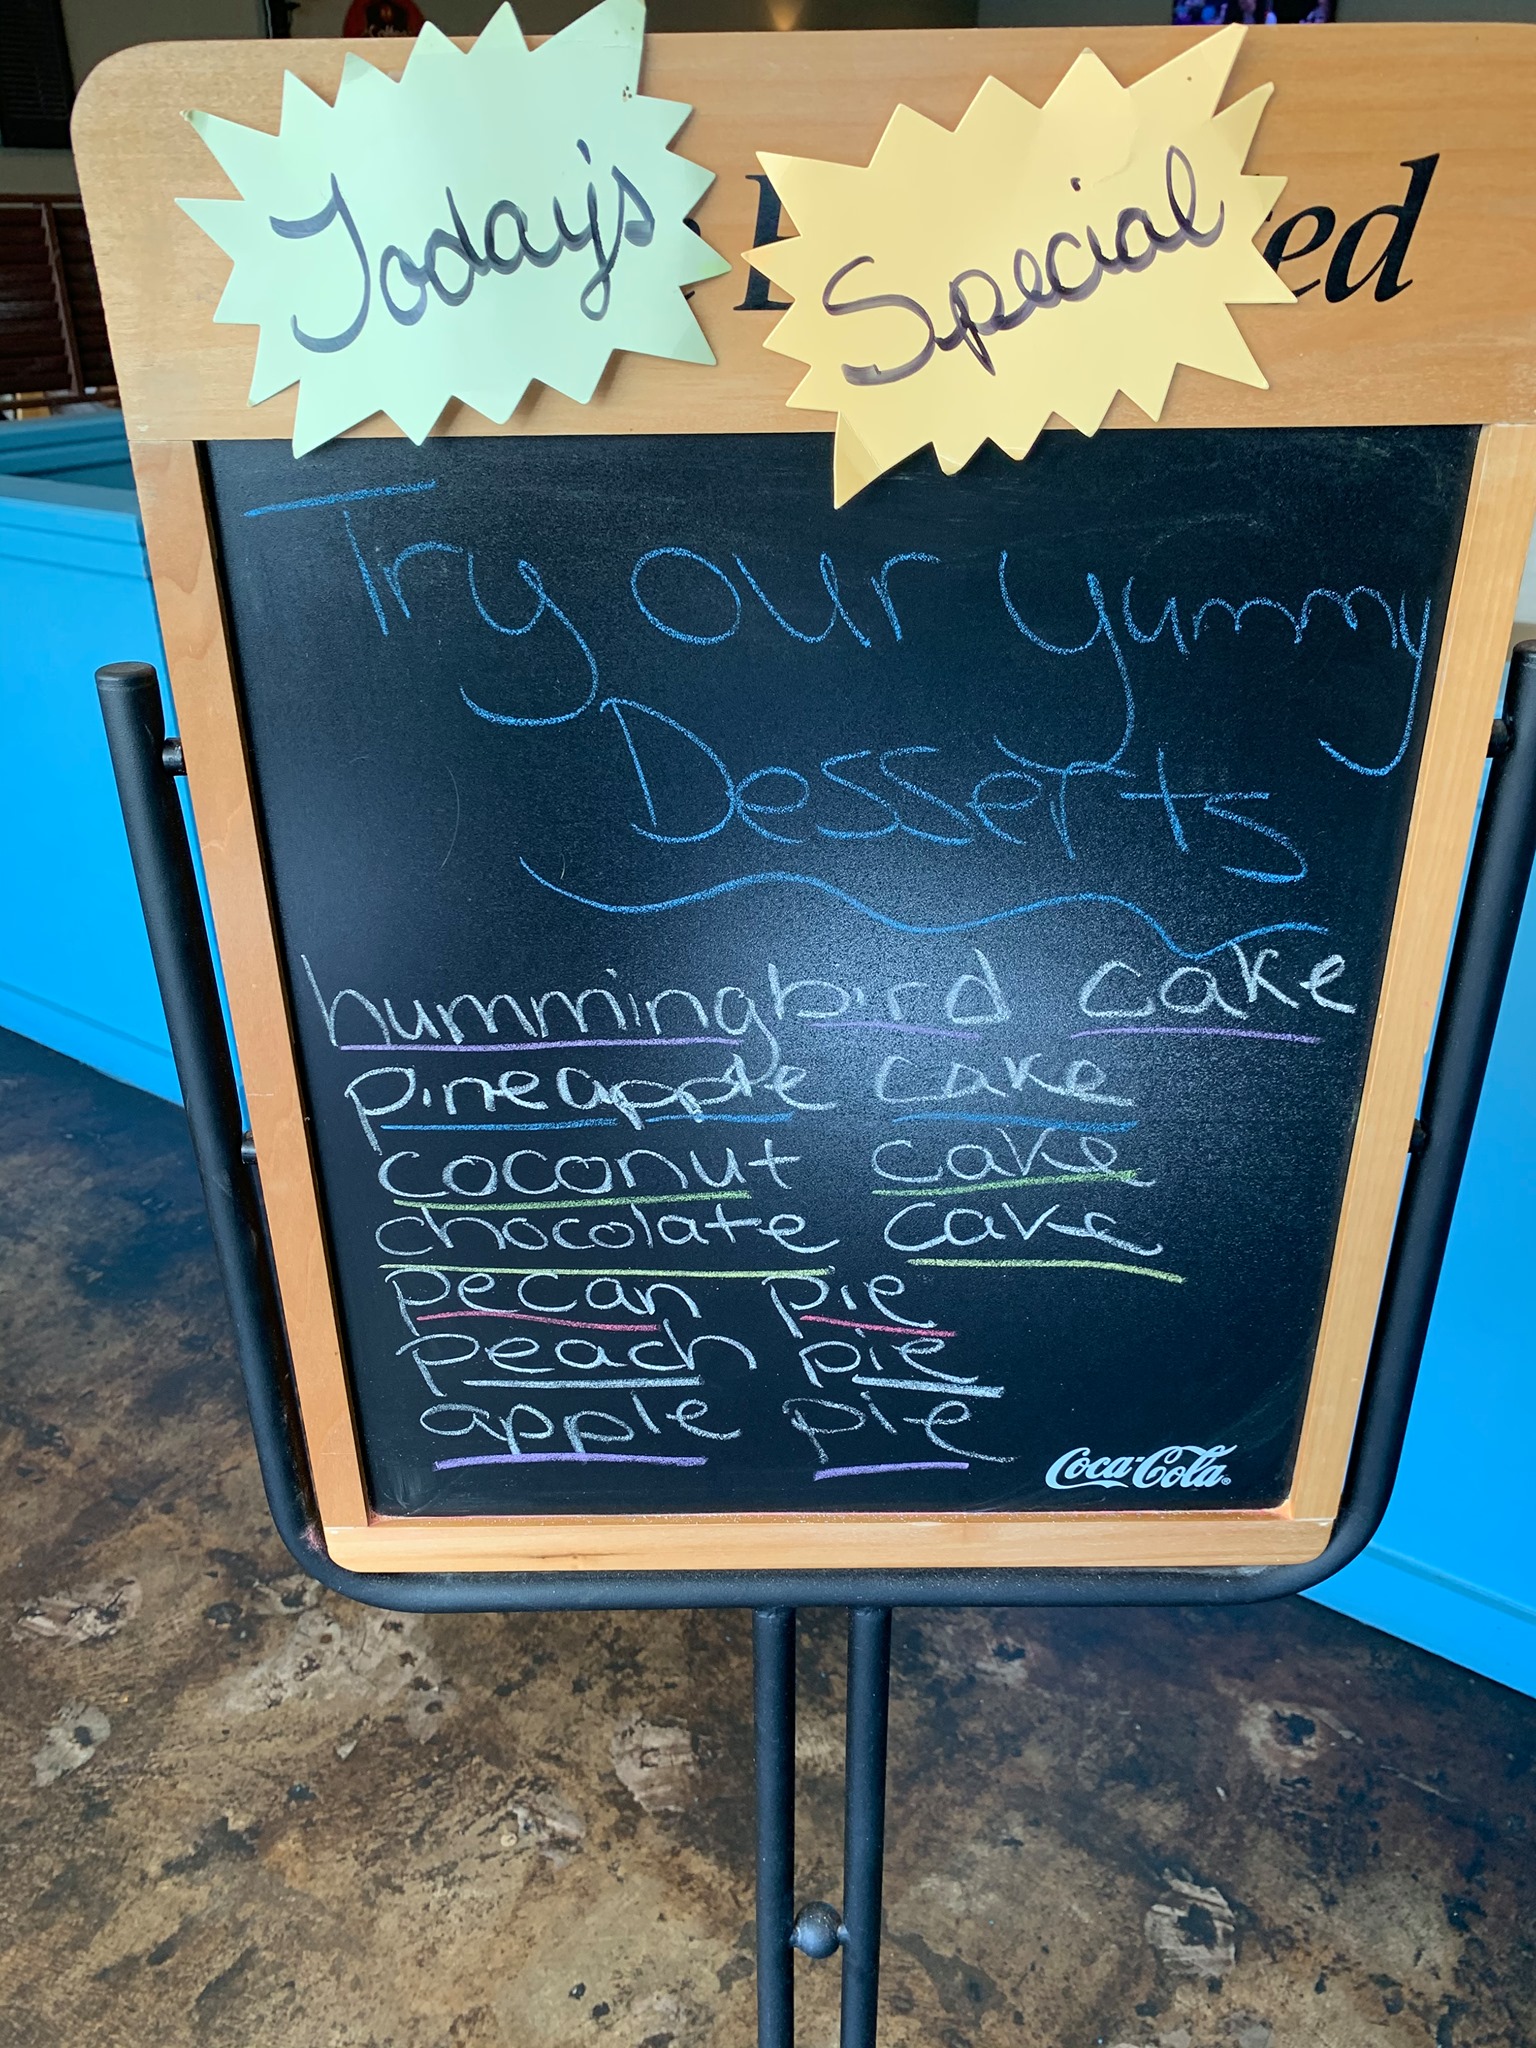 Today's Special
Try our yummy
Desserts
hummingbird cake
pineapple cake
coconut cake
chocolate cake
pecan pie
peach pie
apple pie
Coca-Cola